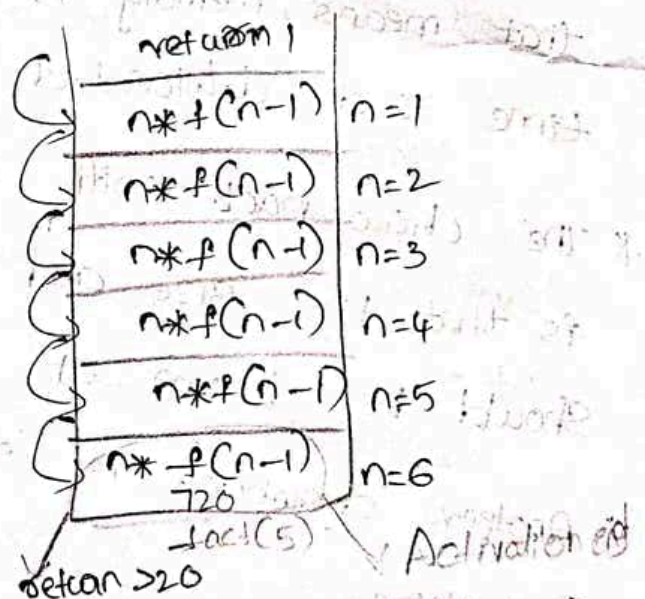 return 1
n* f(n-1) n=1
n* f(n-1) n=2
n* f(n-1) n=3
n* f(n-1) n=4
n* f(n-1) n=5
n* f(n-1) n=6
720
fact(5)
return >20